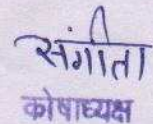 संगीता
कोषाध्यक्ष